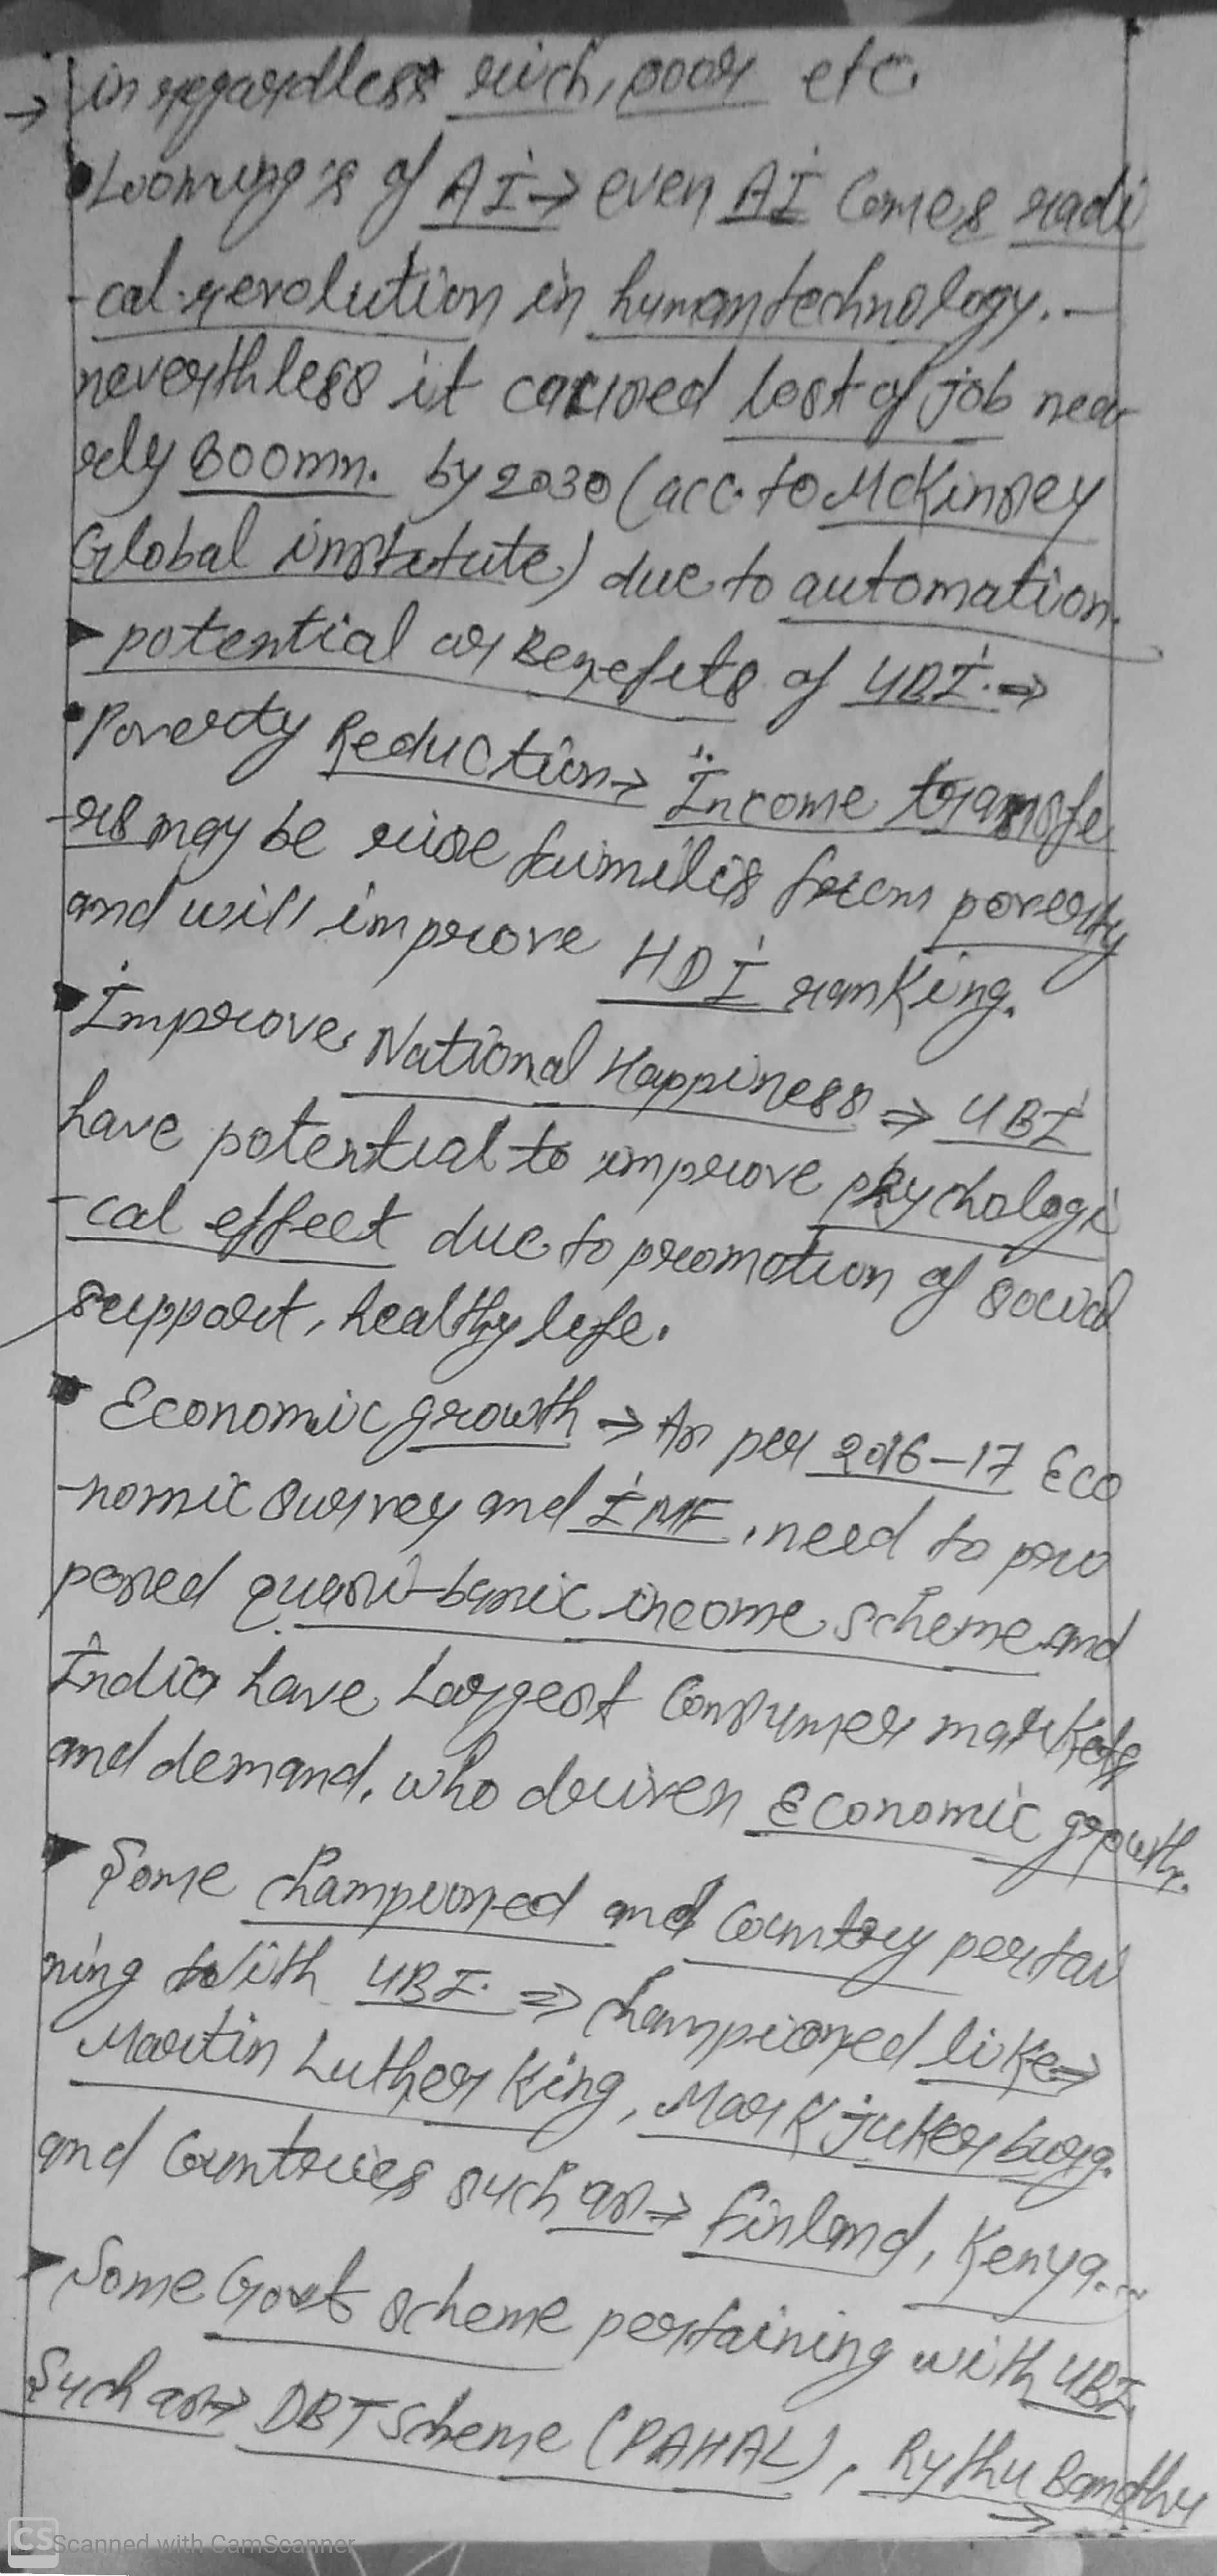 → in regardless rich, poor etc.
• Looming's of AI → even AI comes radi
-cal revolution in human technology. —
neverthless it caused lost of job nea-
rly 800mn. by 2030 (acc. to McKinsey
Global institute) due to automation.
▸ potential or Benefits of UBI. ⇒
• Poverty Reduction → Income transfe
-rs may be rise familis from poverty
and will improve HDI ranking.
• Improve National Happiness ⇒ UBI
have potential to improve phychologi
-cal effect due to promotion of social
support, healthy life.
• Economic growth → As per 2016-17 Eco
-nomic survey and IMF, need to pro
posed quasi-basic income scheme and
India have Largest Consumer markets
and demand, who driven Economic growth.
▸ Some championed and Country pertai
ning with UBI. ⇒ championed like ⇒
Martin Luther King, Mark jukerburg.
and Countries such as ⇒ Finland, Kenya...
▸ Some Govt scheme pertaining with UBI,
Such as → DBT Scheme (PAHAL), Rythu Bandhu
→ ...
CS Scanned with CamScanner